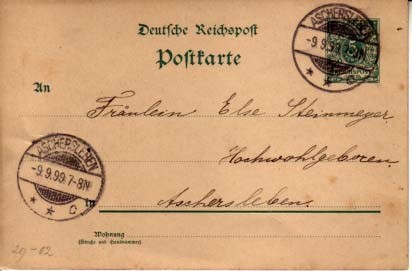 Deutsche Reichspost
Postkarte
ASCHERSLEBEN
-9.9.99.
An
Fräulein Else Steinmeyer
Hochwohlgeboren
ASCHERSLEBEN
-9.9.99.7-8N
* * c
in
Aschersleben.
Wohnung
(Straße und Hausnummer)
29-02